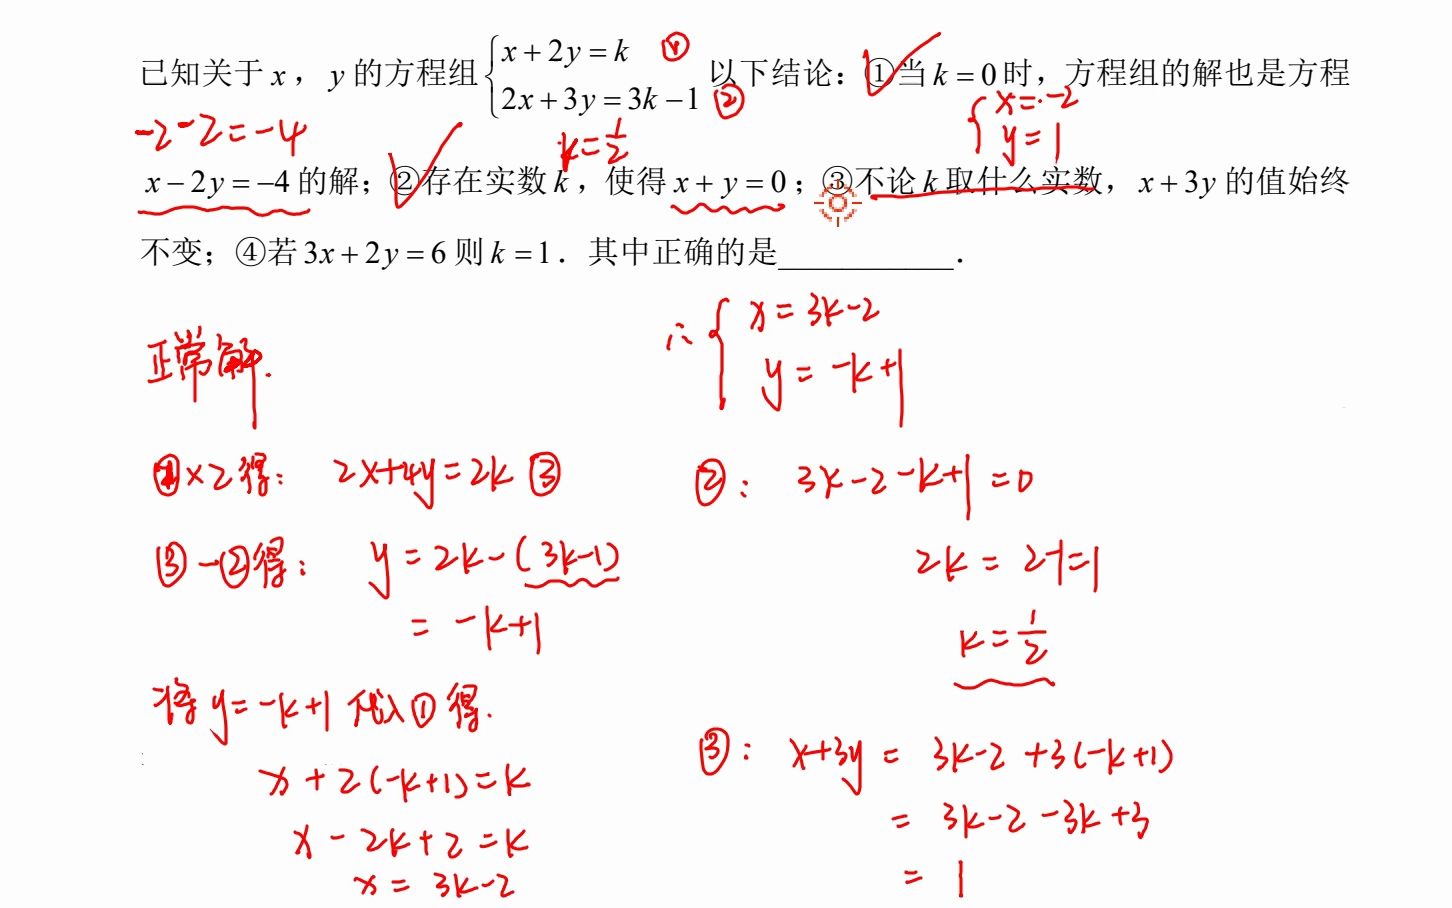 已知关于 x，y 的方程组 { x + 2y = k ① 以下结论：①当 k = 0 时，方程组的解也是方程
2x + 3y = 3k − 1 ②
x = -2
y = 1
-2-2=-4
k=1/2
x − 2y = −4 的解；②存在实数 k，使得 x + y = 0；③不论 k 取什么实数，x + 3y 的值始终
不变；④若 3x + 2y = 6 则 k = 1．其中正确的是___________．
正常解.
①×2得： 2x+4y=2k ③
③-②得： y=2k-(3k-1)
= -k+1
将 y=-k+1 代入①得.
x+2(-k+1)=k
x-2k+2=k
x=3k-2
∴ { x=3k-2
y=-k+1
②： 3k-2-k+1=0
2k=2-1=1
k=1/2
③： x+3y = 3k-2+3(-k+1)
= 3k-2-3k+3
= 1